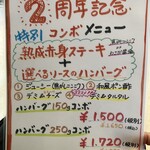 2周年記念
特別コンボメニュー
熟成赤身ステーキ
+
選べるソースのハンバーグ
1 ジューシー
2 和風ポン酢
3 デミチーズ
ハンバーグ150gコンボ
¥1,500(税別)
ハンバーグ250gコンボ
¥1,720(税別)